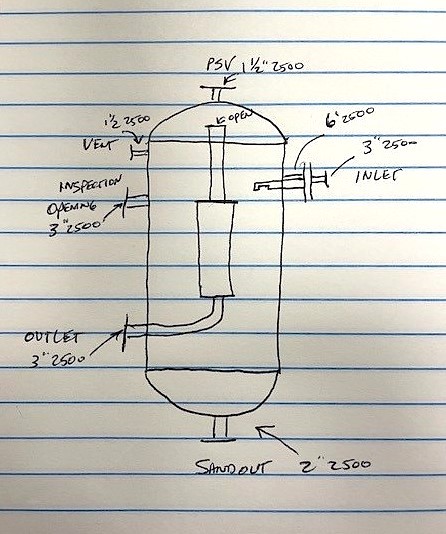 PSV 1 1/2" 2500
OPEN
1 1/2 2500
VENT
6" 2500
3" 2500
INLET
INSPECTION
OPENING
3" 2500
OUTLET
3" 2500
SANDOUT
2" 2500